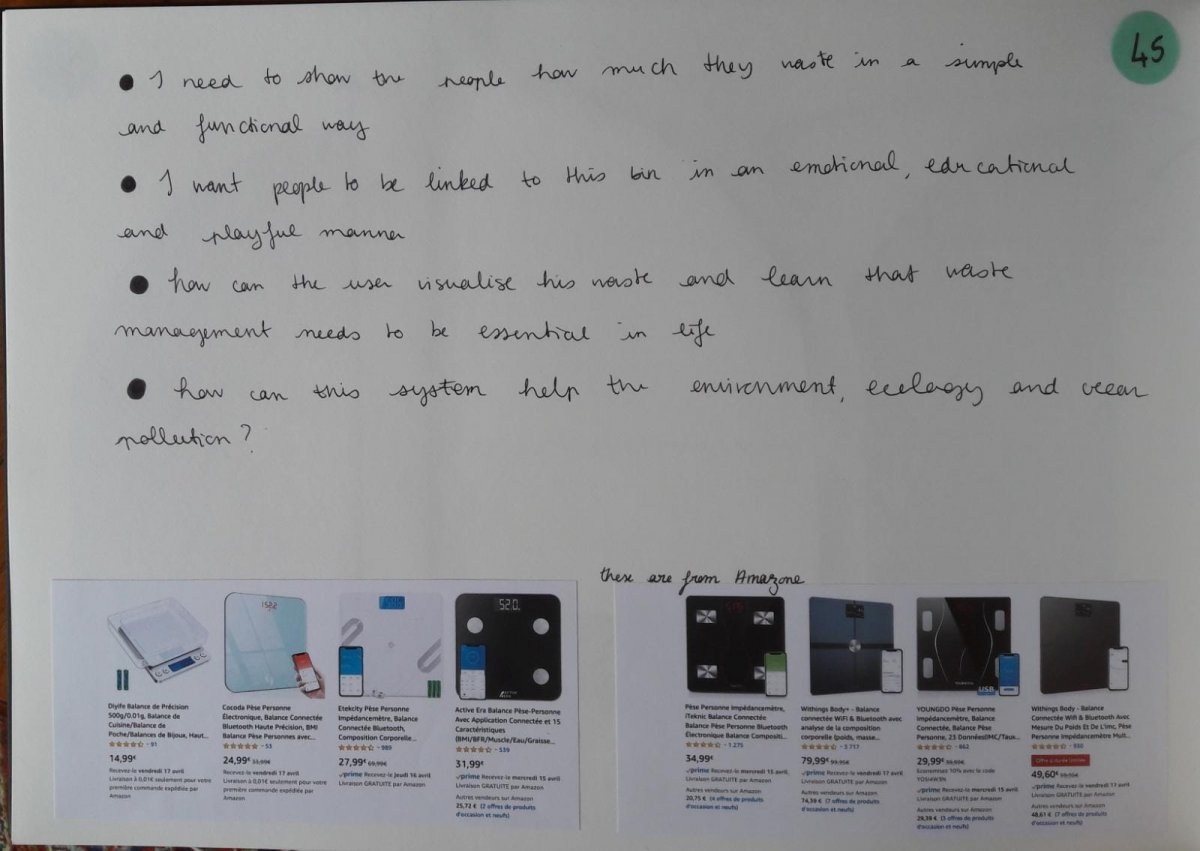 45
● I need to show the people how much they waste in a simple
and functional way
● I want people to be linked to this bin in an emotional, educational
and playful manner
● how can the user visualise his waste and learn that waste
management needs to be essential in life
● how can this system help the environment, ecology and ocean
pollution?
these are from Amazone
Diyife Balance de Précision
500g/0.01g, Balance de
Cuisine/Balance de
Poche/Balances de Bijoux, Haut...
91
14,99€
Recevez-le vendredi 17 avril
Livraison à 0,01€ seulement pour votre
première commande expédiée par
Amazon
Cocoda Pèse Personne
Électronique, Balance Connectée
Bluetooth Haute Précision, BMI
Balance Pèse Personnes avec...
53
24,99€
Recevez-le vendredi 17 avril
Livraison à 0,01€ seulement pour votre
première commande expédiée par
Amazon
Etekcity Pèse Personne
Impédancemètre, Balance
Connectée Bluetooth,
Composition Corporelle...
989
27,99€ 69,99€
prime Recevez-le jeudi 16 avril
Livraison GRATUITE par Amazon
520.
Active Era Balance Pèse-Personne
Avec Application Connectée et 15
Caractéristiques
(BMI/BFR/Muscle/Eau/Graisse...
539
31,99€
prime Recevez-le mercredi 15 avril
Livraison GRATUITE par Amazon
Autres vendeurs sur Amazon
25,72 € (2 offres de produits
d'occasion et neufs)
Pèse Personne Impédancemètre,
iTeknic Balance Connectée
Balance Pèse Personne Bluetooth
Électronique Balance Compositi...
1.275
34,99€
prime Recevez-le mercredi 15 avril
Livraison GRATUITE par Amazon
Autres vendeurs sur Amazon
20,75 € (4 offres de produits
d'occasion et neufs)
Withings Body+ - Balance
connectée WiFi & Bluetooth avec
analyse de la composition
corporelle (poids, masse...
3 717
79,99€ 99,95€
prime Recevez-le vendredi 17 avril
Livraison GRATUITE par Amazon
Autres vendeurs sur Amazon
74,39 € (7 offres de produits
d'occasion et neufs)
USB
YOUNGDO Pèse Personne
Impédancemètre, Balance
Connectée, Balance Pèse
Personne, 23 Données(IMC/Taux...
862
29,99€
Économisez 10% avec le code
prime Recevez-le mercredi 15 avril
Livraison GRATUITE par Amazon
Autres vendeurs sur Amazon
29,39 € (3 offres de produits
d'occasion et neufs)
Withings Body - Balance
Connectée Wifi & Bluetooth Avec
Mesure Du Poids Et De L'imc, Pèse
Personne Impédancemètre Mult...
930
Offre à durée limitée
49,60€
prime Recevez-le vendredi 17 avril
Livraison GRATUITE par Amazon
Autres vendeurs sur Amazon
48,61 € (7 offres de produits
d'occasion et neufs)